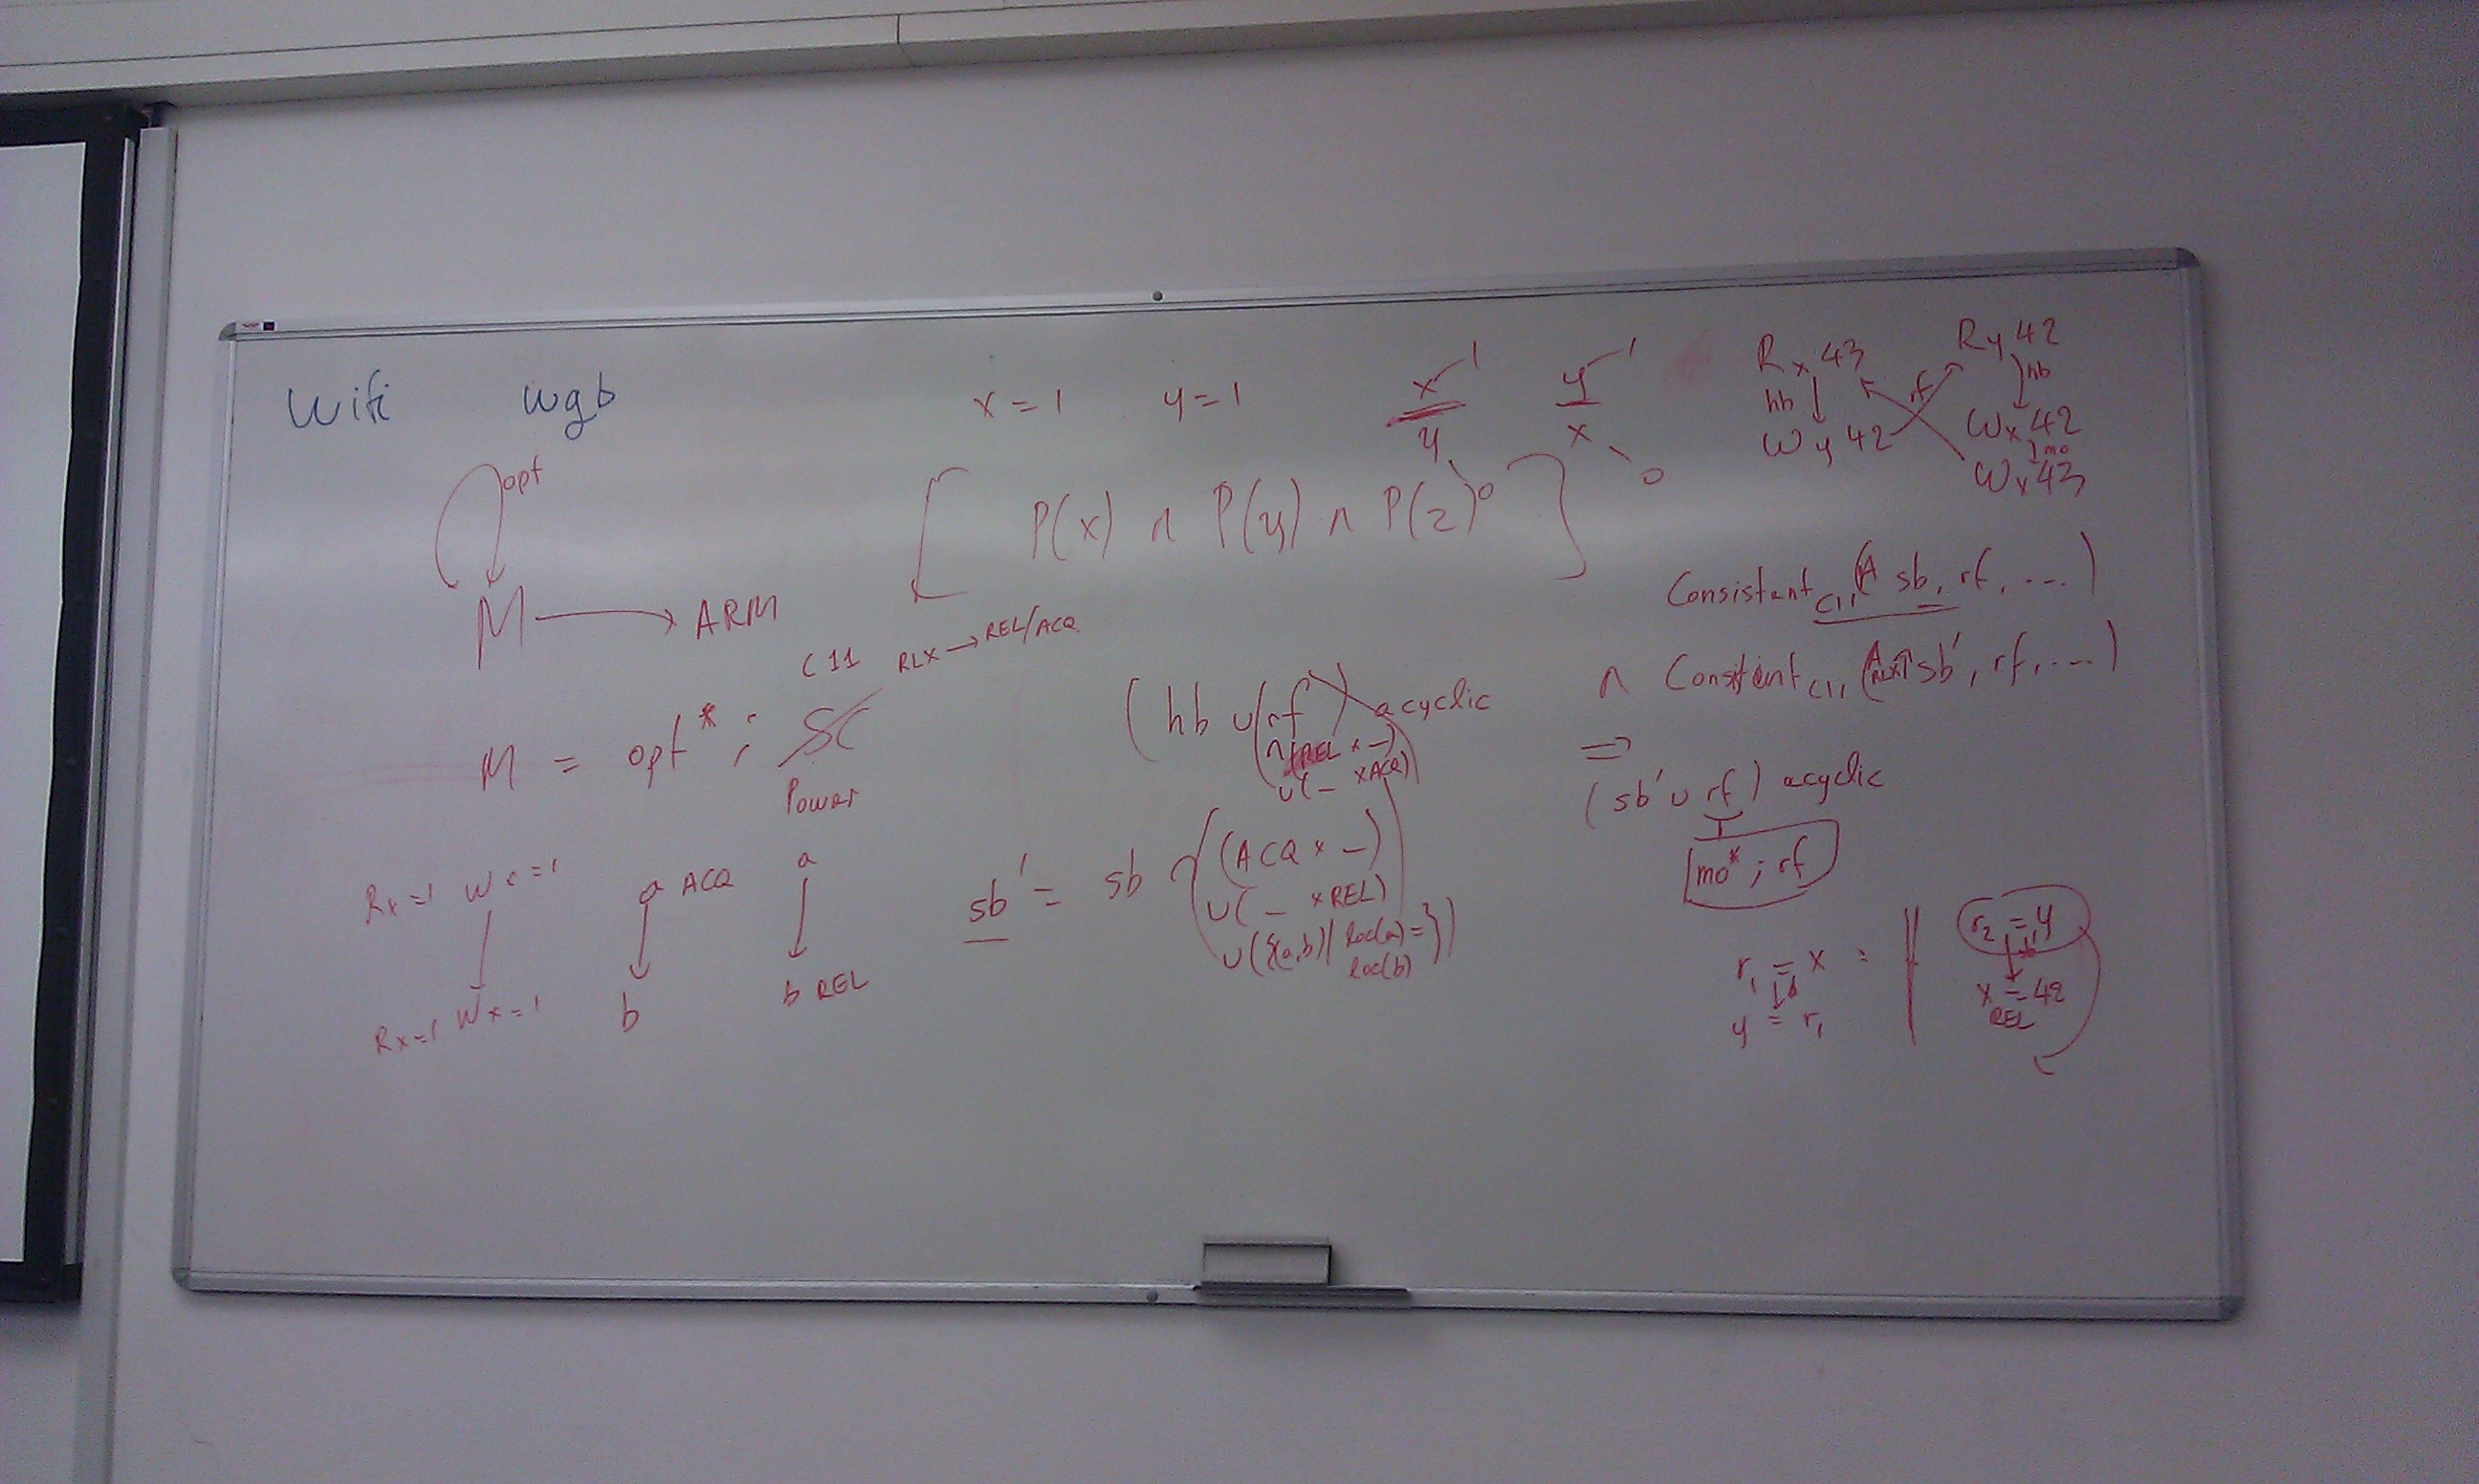 Wifi wgb
opt
M → ARM
C11 RLX → REL/ACQ
M = opt* ; SC
Power
Rx=1 Wx=1
Rx=1 Wx=1
a ACQ
b
a
b REL
x=1 y=1
x 1
y 0
y 1
x 0
[ P(x) ∧ P(y) ∧ P(z) ]
(hb ∪ rf) acyclic
∩(REL × _)
∪(_ × ACQ)
sb' = sb ∩ ( (ACQ × _)
∪(_ × REL)
∪({(a,b) | loc(a) =
loc(b) }) )
Rx43
hb
Wy42
rf
Ry42
hb
Wx42
mo
Wx43
Consistent C11 (A sb, rf, ....)
∧ Consistent C11 (A sb', rf, ....)
⇒
(sb' ∪ rf) acyclic
mo* ; rf
r1 = x
y = r1
r2 = y
x = 42
REL